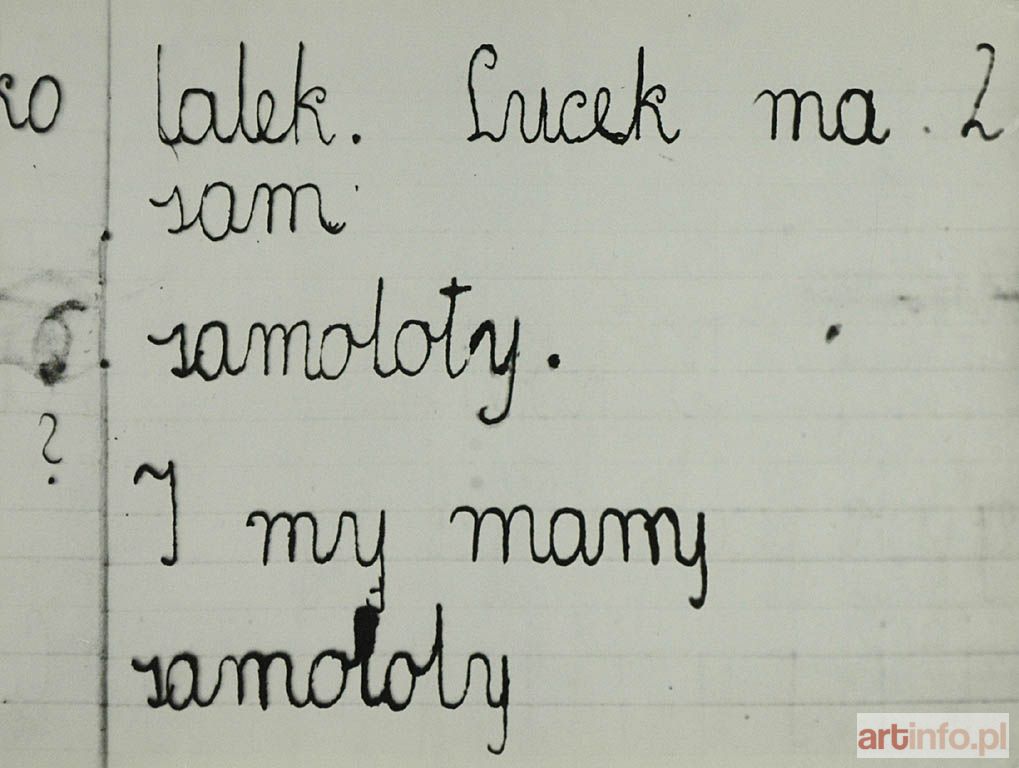 ko lalek. Lucek ma 2
sam
samoloty.
?
I my mamy
samololy
artinfo.pl